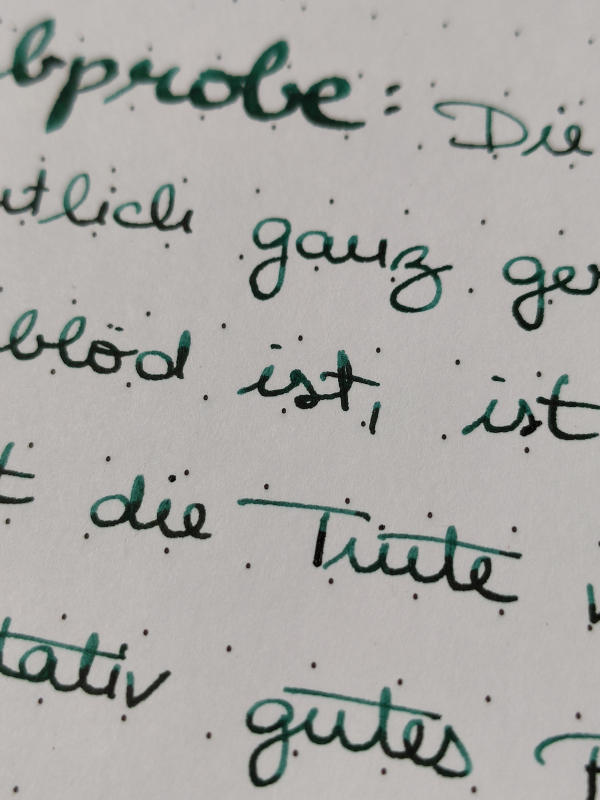 bprobe: Die
utlich ganz ger
blöd ist, ist
t die Tinte
tativ gutes